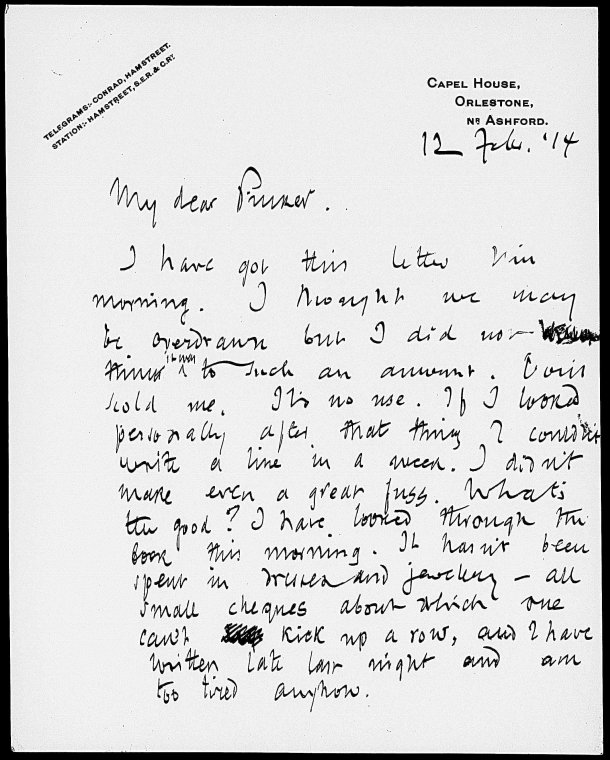 TELEGRAMS:- CONRAD, HAMSTREET.
STATION:- HAMSTREET, S.E.R. & C.RY.
CAPEL HOUSE,
ORLESTONE,
NR ASHFORD.
12 Feb. '14
My dear Pinker.
I have got this letter this
morning. I thought we may
be overdrawn but I did not
think it was to such an amount. Don't
scold me. It's no use. If I looked
personally after that thing I couldn't
write a line in a week. I didn't
make even a great fuss. What's
the good? I have looked through the
book this morning. It hasn't been
spent in dresses and jewellery – all
small cheques about which one
can't kick up a row, and I have
written late last night and am
too tired anyhow.